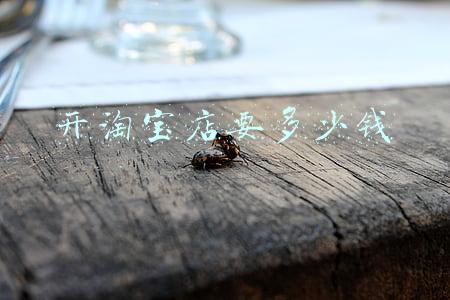 开淘宝店要多少钱